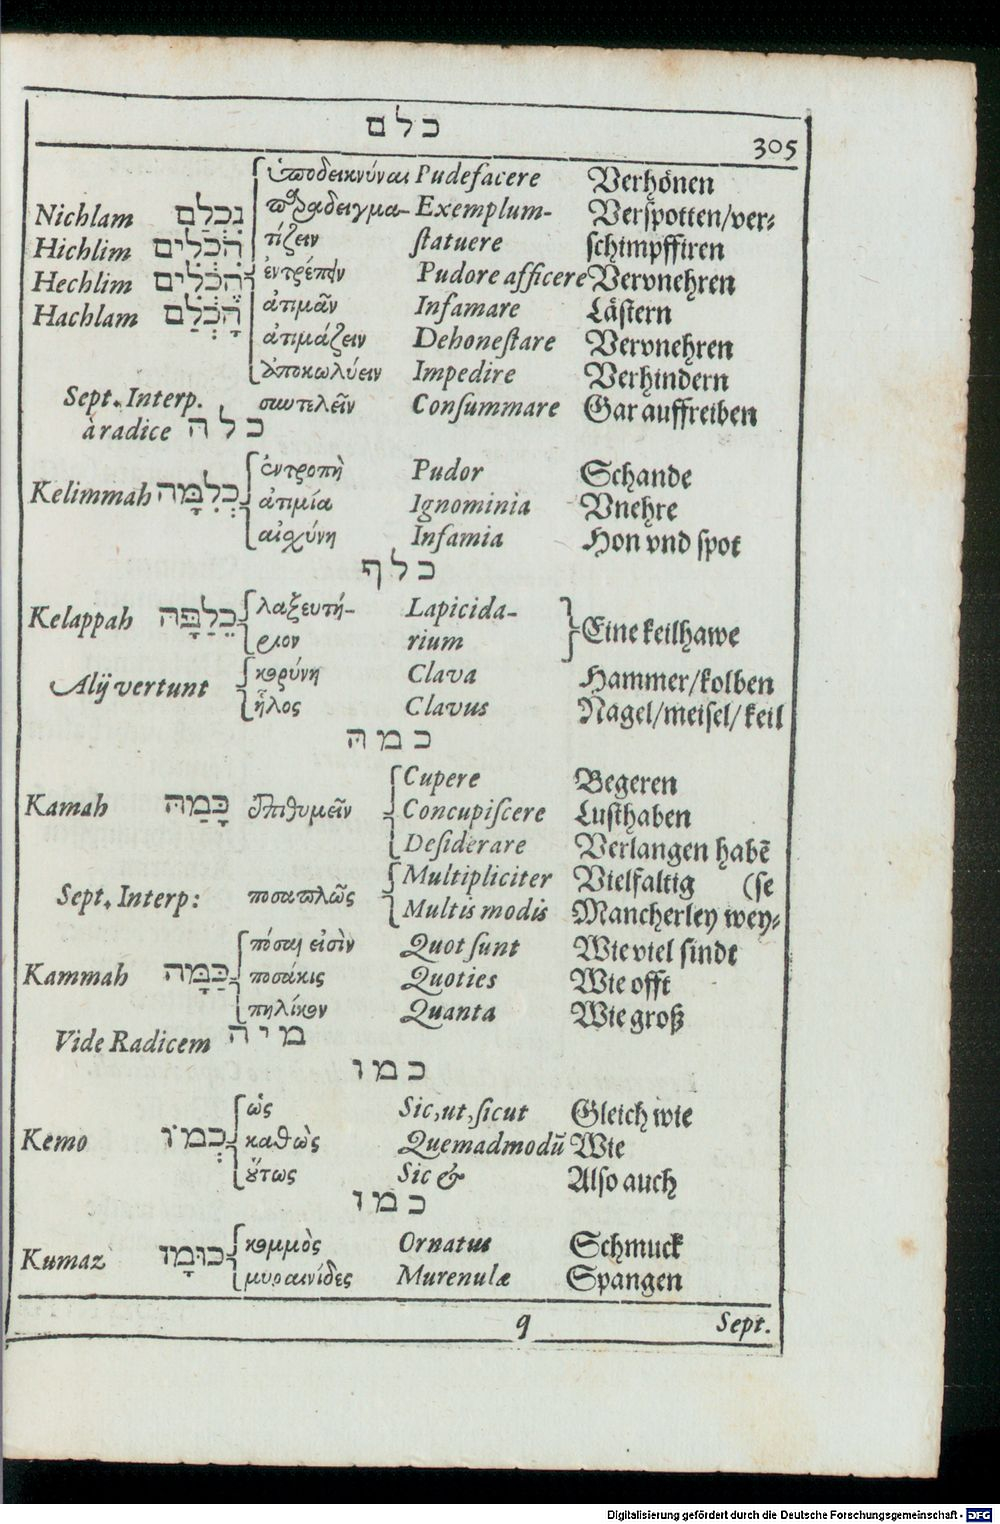 כלם
305
ὑποδεικνύναι Pudefacere Verhönen
Nichlam נִכְלַם παραδειγμα- Exemplum- Verspotten/ver-
Hichlim הִכְלִים τίζειν statuere schimpffiren
Hechlim הֶכְלִים ἐντρέπειν Pudore afficere Vervnehren
Hachlam הָכְלַם ἀτιμᾶν Infamare Lästern
ἀτιμάζειν Dehonestare Vervnehren
ἀποκωλύειν Impedire Verhindern
Sept. Interp. συντελεῖν Consummare Gar auffreiben
à radice כלה
ἐντροπὴ Pudor Schande
Kelimmah כְּלִמָּה ἀτιμία Ignominia Vnehre
αἰσχύνη Infamia Hon vnd spot
כלף
Kelappah כֵלַפָּה λαξευτή- Lapicida- Eine keilhawe
ριον rium
Alij vertunt κορύνη Clava Hammer/kolben
ἧλος Clavus Nagel/meisel/keil
כמה
Cupere Begeren
Kamah כָּמַהּ ἐπιθυμεῖν Concupiscere Lusthaben
Desiderare Verlangen habē
Sept. Interp: ποσαπλῶς Multipliciter Vielfaltig (se
Multis modis Mancherley wey-
πόσαι εἰσὶν Quot sunt Wie viel sindt
Kammah כַּמָּה ποσάκις Quoties Wie offt
πηλίκον Quanta Wie groß
Vide Radicem מיה
כמו
ὡς Sic, ut, sicut Gleich wie
Kemo כְּמוֹ καθὼς Quemadmodū Wie
οὕτως Sic & Also auch
כמו
Kumaz כּוּמָז κομμὸς Ornatus Schmuck
μυραινίδες Murenulæ Spangen
q Sept.
Digitalisierung gefördert durch die Deutsche Forschungsgemeinschaft - DFG